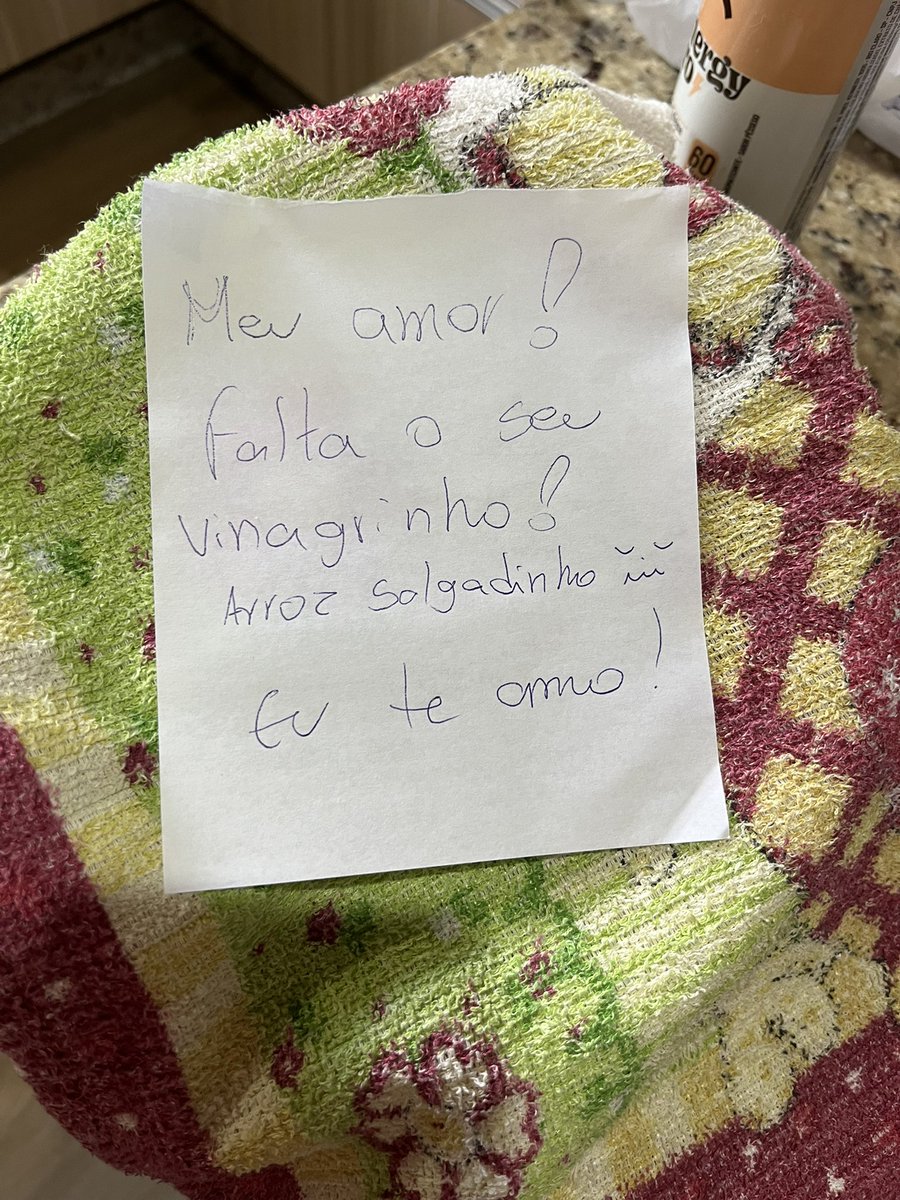 Meu amor!
Falta o seu
vinagrinho!
Arroz salgadinho
Eu te amo!
ergy
60